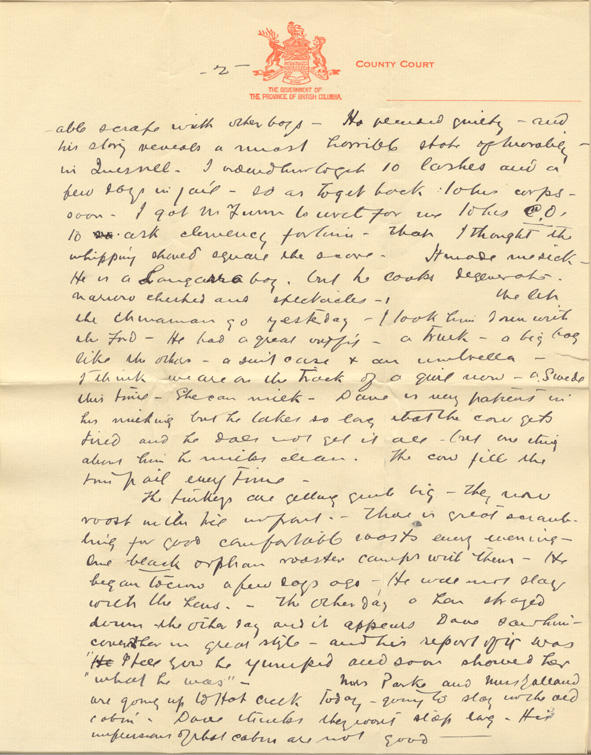 - 2 -
COUNTY COURT
THE GOVERNMENT OF
THE PROVINCE OF BRITISH COLUMBIA.
able scrape with other boys - He pleaded guilty - and
his story reveals a most horrible state of morality -
in Quesnell. I ordered him to get 10 lashes and a
few days in jail - so as to get back to his corps -
soon - I got to write for me to his C.O.
to ask clemency for him - that I thought the
whipping should square the score. It made me sick -
He is a Langara boy. but he looks degenerate.
narrow chested and spectacles - We let
the Chinaman go yesterday - I took him down with
the Ford - He had a great outfit - a trunk - a big bag
like the others - a suit case & an umbrella -
I think we are on the track of a girl now - a Swede
this time - She can milk - Dave is very patient in
his milking but he takes so long that the cow gets
tired and he does not get it all - but one thing
about him he milks clean. The cow fill the
pail every time -
The turkeys are getting quite big - they now
roost in the - There is great scramb-
ling for good comfortable roosts every evening -
One black orphan rooster camps with them - He
began to crow a few days ago - He will not stay
with the hens. - The other day a hen strayed
down the other day and it appears Dave saw him -
cover her in great style - and his report of it was
"I tell you he yumped and soon showed her
"what he was" - Mrs Parke and Mrs
are going up to Hat Creek today - going to stay in the old
cabin - Dave thinks they won't stop long - His
impressions of that cabin are not good